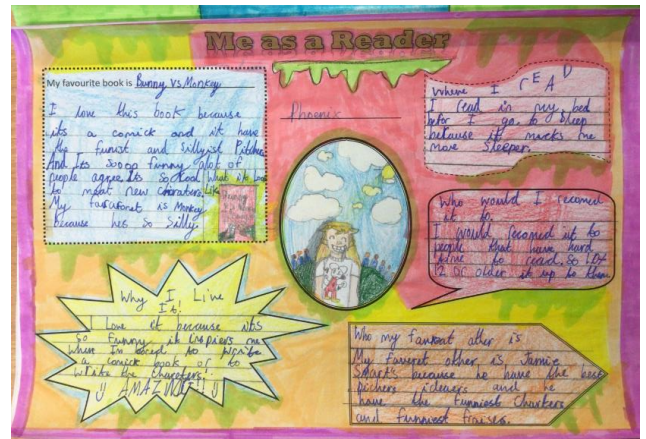 Me as a Reader
My favourite book is Bunny vs Monkey
I love this book because
its a comick and it have
the funist and sillyist Pitchers
And Its soooo funny alot of
people agree. Its so Kool What its like
to meat new charaters.
My favuroret is Monkey
because hes so silly.
Phoenix
Where I rEAD
I read in my bed
befor I go to sleep
because it mucks me
more sleeper.
Who would I recomed
it to.
I would recomed it to
people that have hard
time to read. So
12 or older it up to them
Why I Live
It!
I Love it because its
so funny it inspiers me
where Im to write
a comick book or to
write the charaters!
AMAZING!!
Who my other is
My faveret other is Jamie
Smarts because he have the best
pichers ideaers and he
have the funniest
and funniest fraises.